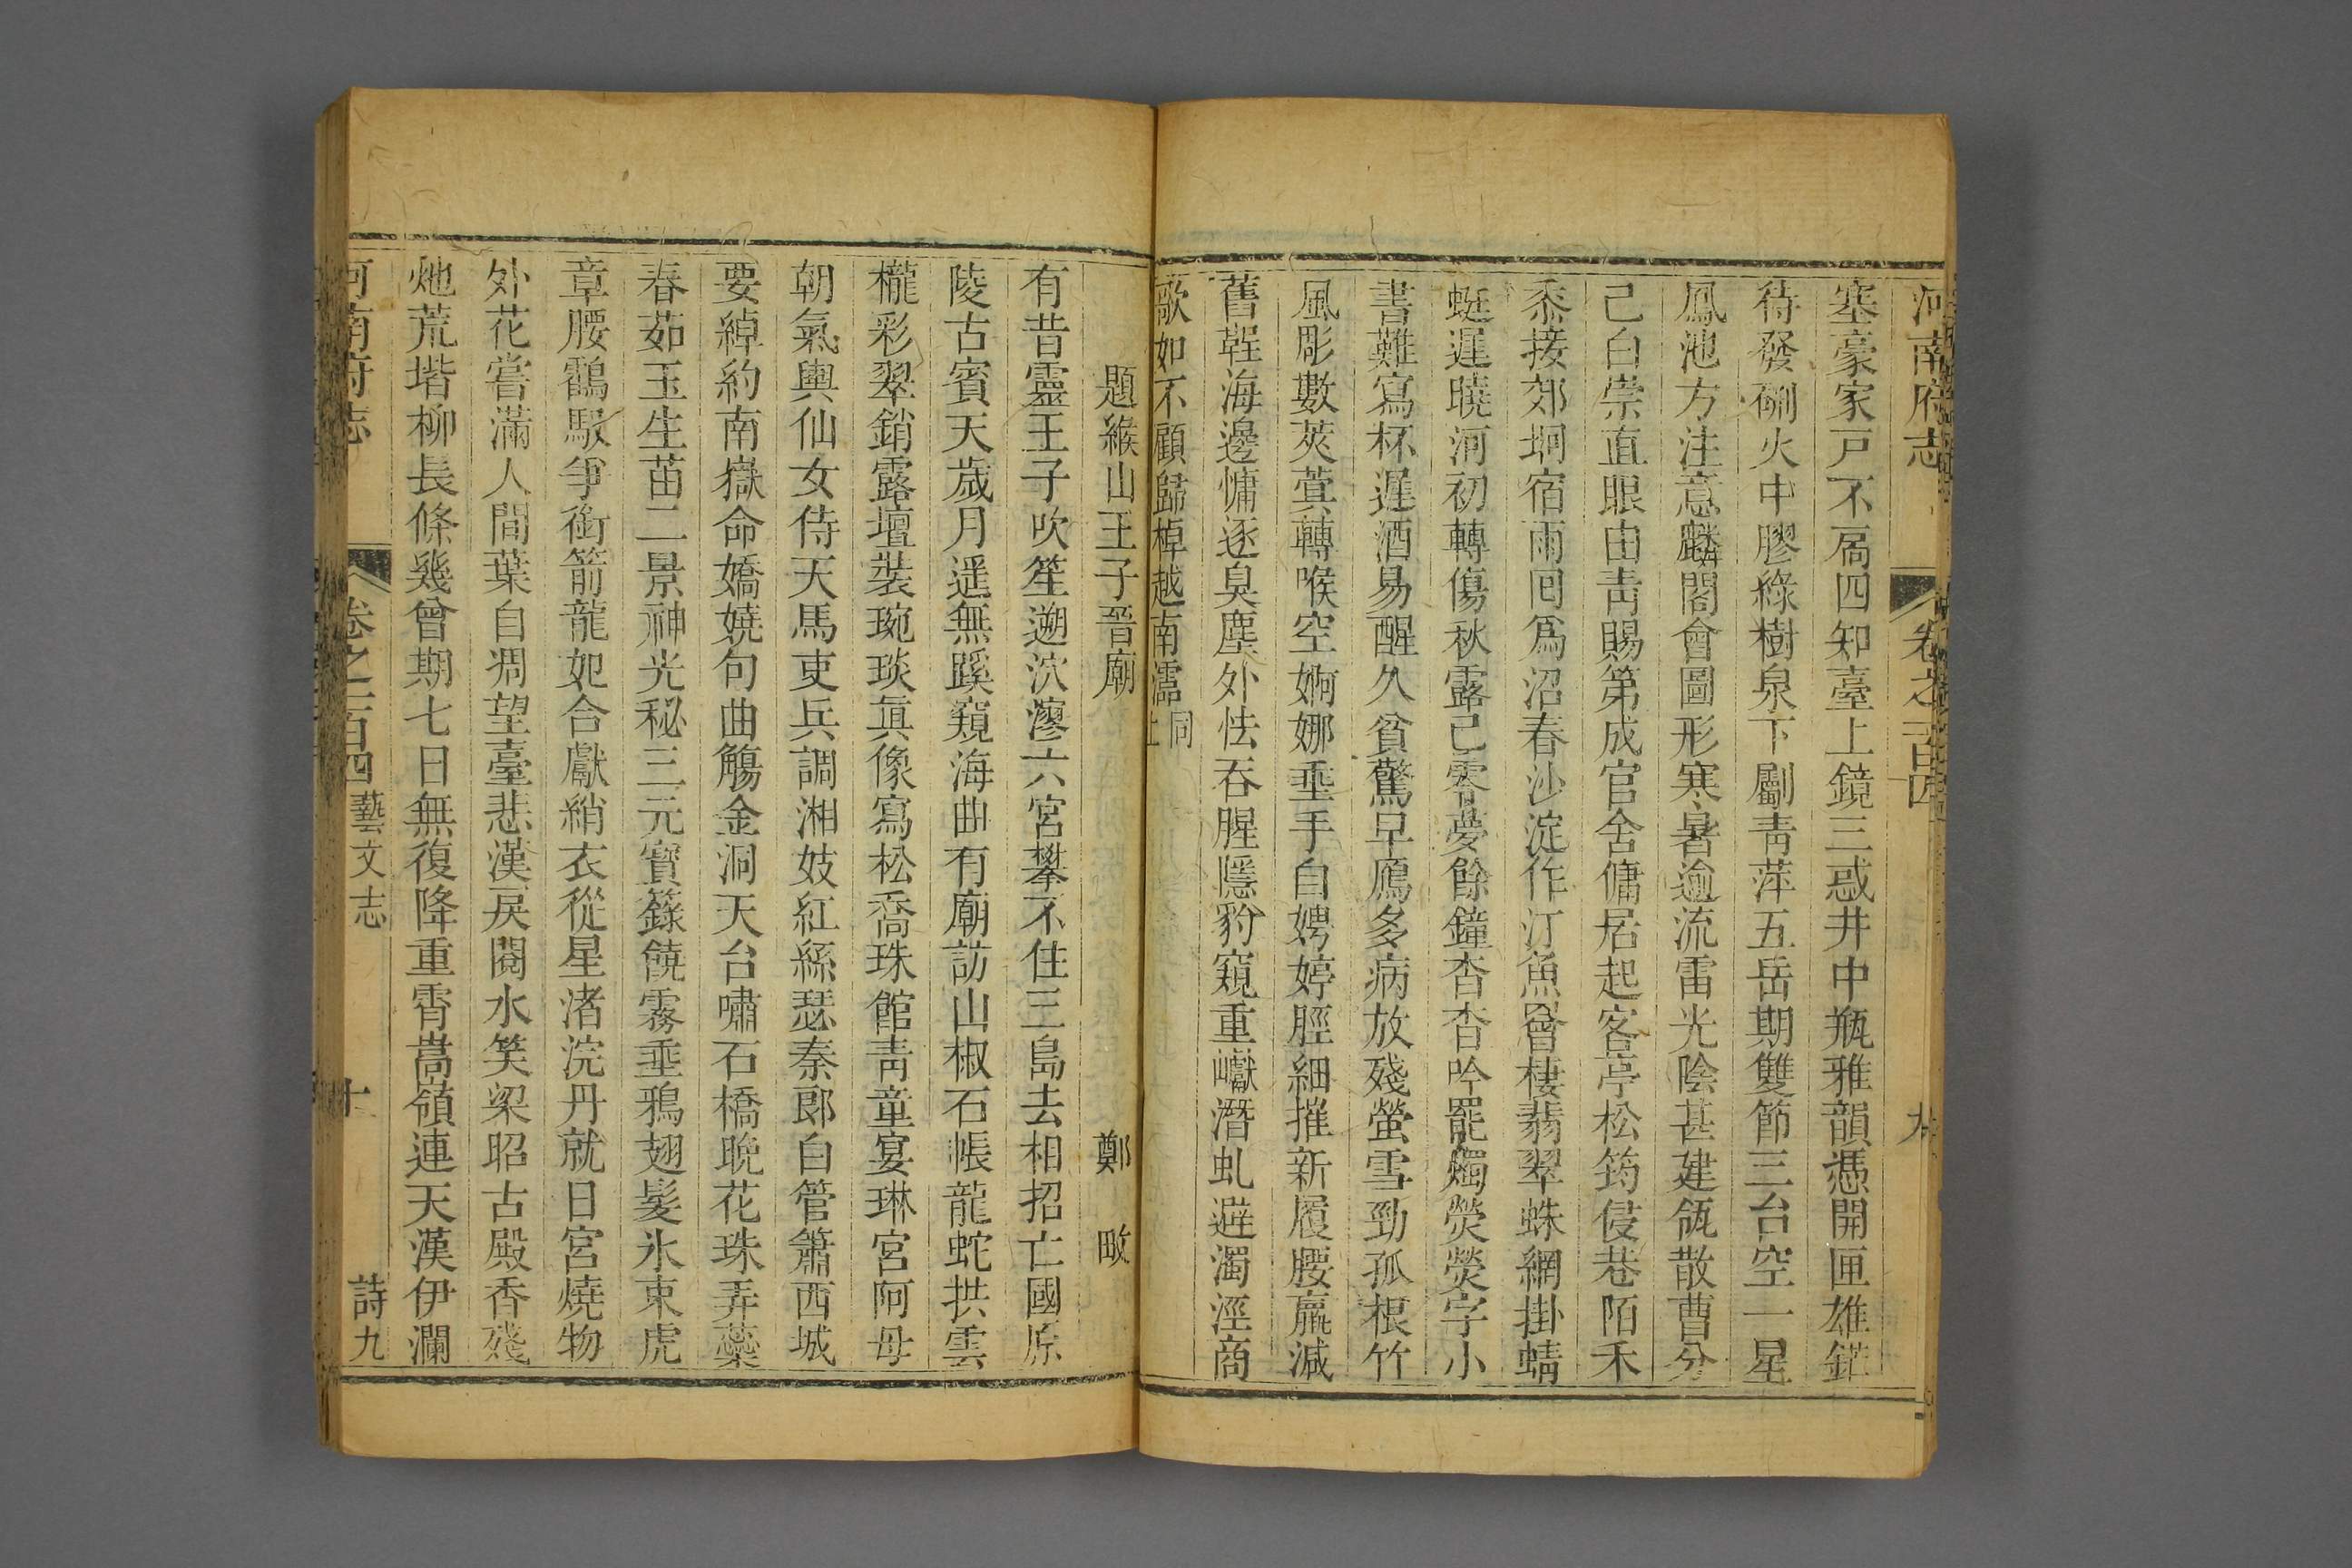 河南府志 卷之一百四 九
塞豪家戸不扃四知臺上鏡三惑井中瓶雅韻憑開匣雄鋩
待發硎火中膠綠樹泉下劚靑萍五岳期雙節三台空一星
鳳池方注意麟閣會圖形寒暑逾流雷光陰甚建瓴散曹分
己白崇直眼由靑賜第成官舍傭居起客亭松筠侵巷陌禾
黍接郊坰宿雨囘爲沼春沙淀作汀魚罾棲翡翠蛛網掛蜻
蜓遲曉河初轉傷秋露已零夢餘鐘杳杳吟罷燭熒熒字小
書難寫杯遲酒易醒久貧驚早鴈多病放殘螢雪勁孤根竹
風彫數莢蓂轉喉空婀娜垂手自娉婷脛細摧新履腰羸減
舊鞓海邊慵逐臭塵外怯吞腥隱豹窺重巘潛虬避濁涇商
歌如不顧歸棹越南𣿰同上
題緱山王子晉廟 鄭畋
有昔靈王子吹笙遡泬漻六宮攀不住三島去相招亡國原
陵古賓天歲月遥無蹊窺海曲有廟訪山椒石帳龍蛇拱雲
櫳彩翠銷露壇裝琬琰眞像寫松喬珠館靑童宴琳宮阿母
朝氣輿仙女侍天馬吏兵調湘妓紅絲瑟秦郎白管簫西城
要綽約南嶽命嬌嬈句曲觴金洞天台嘯石橋晚花珠弄蘂
春茹玉生苗二景神光秘三元寳籙饒霧垂鴉翅髮氷束虎
章腰鸖馭爭銜箭龍妃合獻綃衣從星渚浣丹就日宮燒物
外花嘗滿人間葉自凋望臺悲漢戾閱水笑梁昭古殿香殘
灺荒堦柳長條幾曾期七日無復降重霄嵩嶺連天漢伊瀾
河南府志 卷之一百四 藝文志 十 詩九